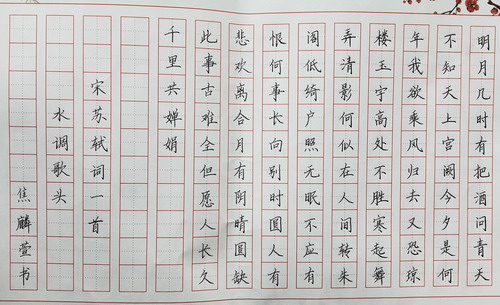 明月几时有把酒问青天
不知天上宫阙今夕是何
年我欲乘风归去又恐琼
楼玉宇高处不胜寒起舞
弄清影何似在人间转朱
阁低绮户照无眠不应有
恨何事长向别时圆人有
悲欢离合月有阴晴圆缺
此事古难全但愿人长久
千里共婵娟
宋苏轼词一首
水调歌头
焦麟萱书